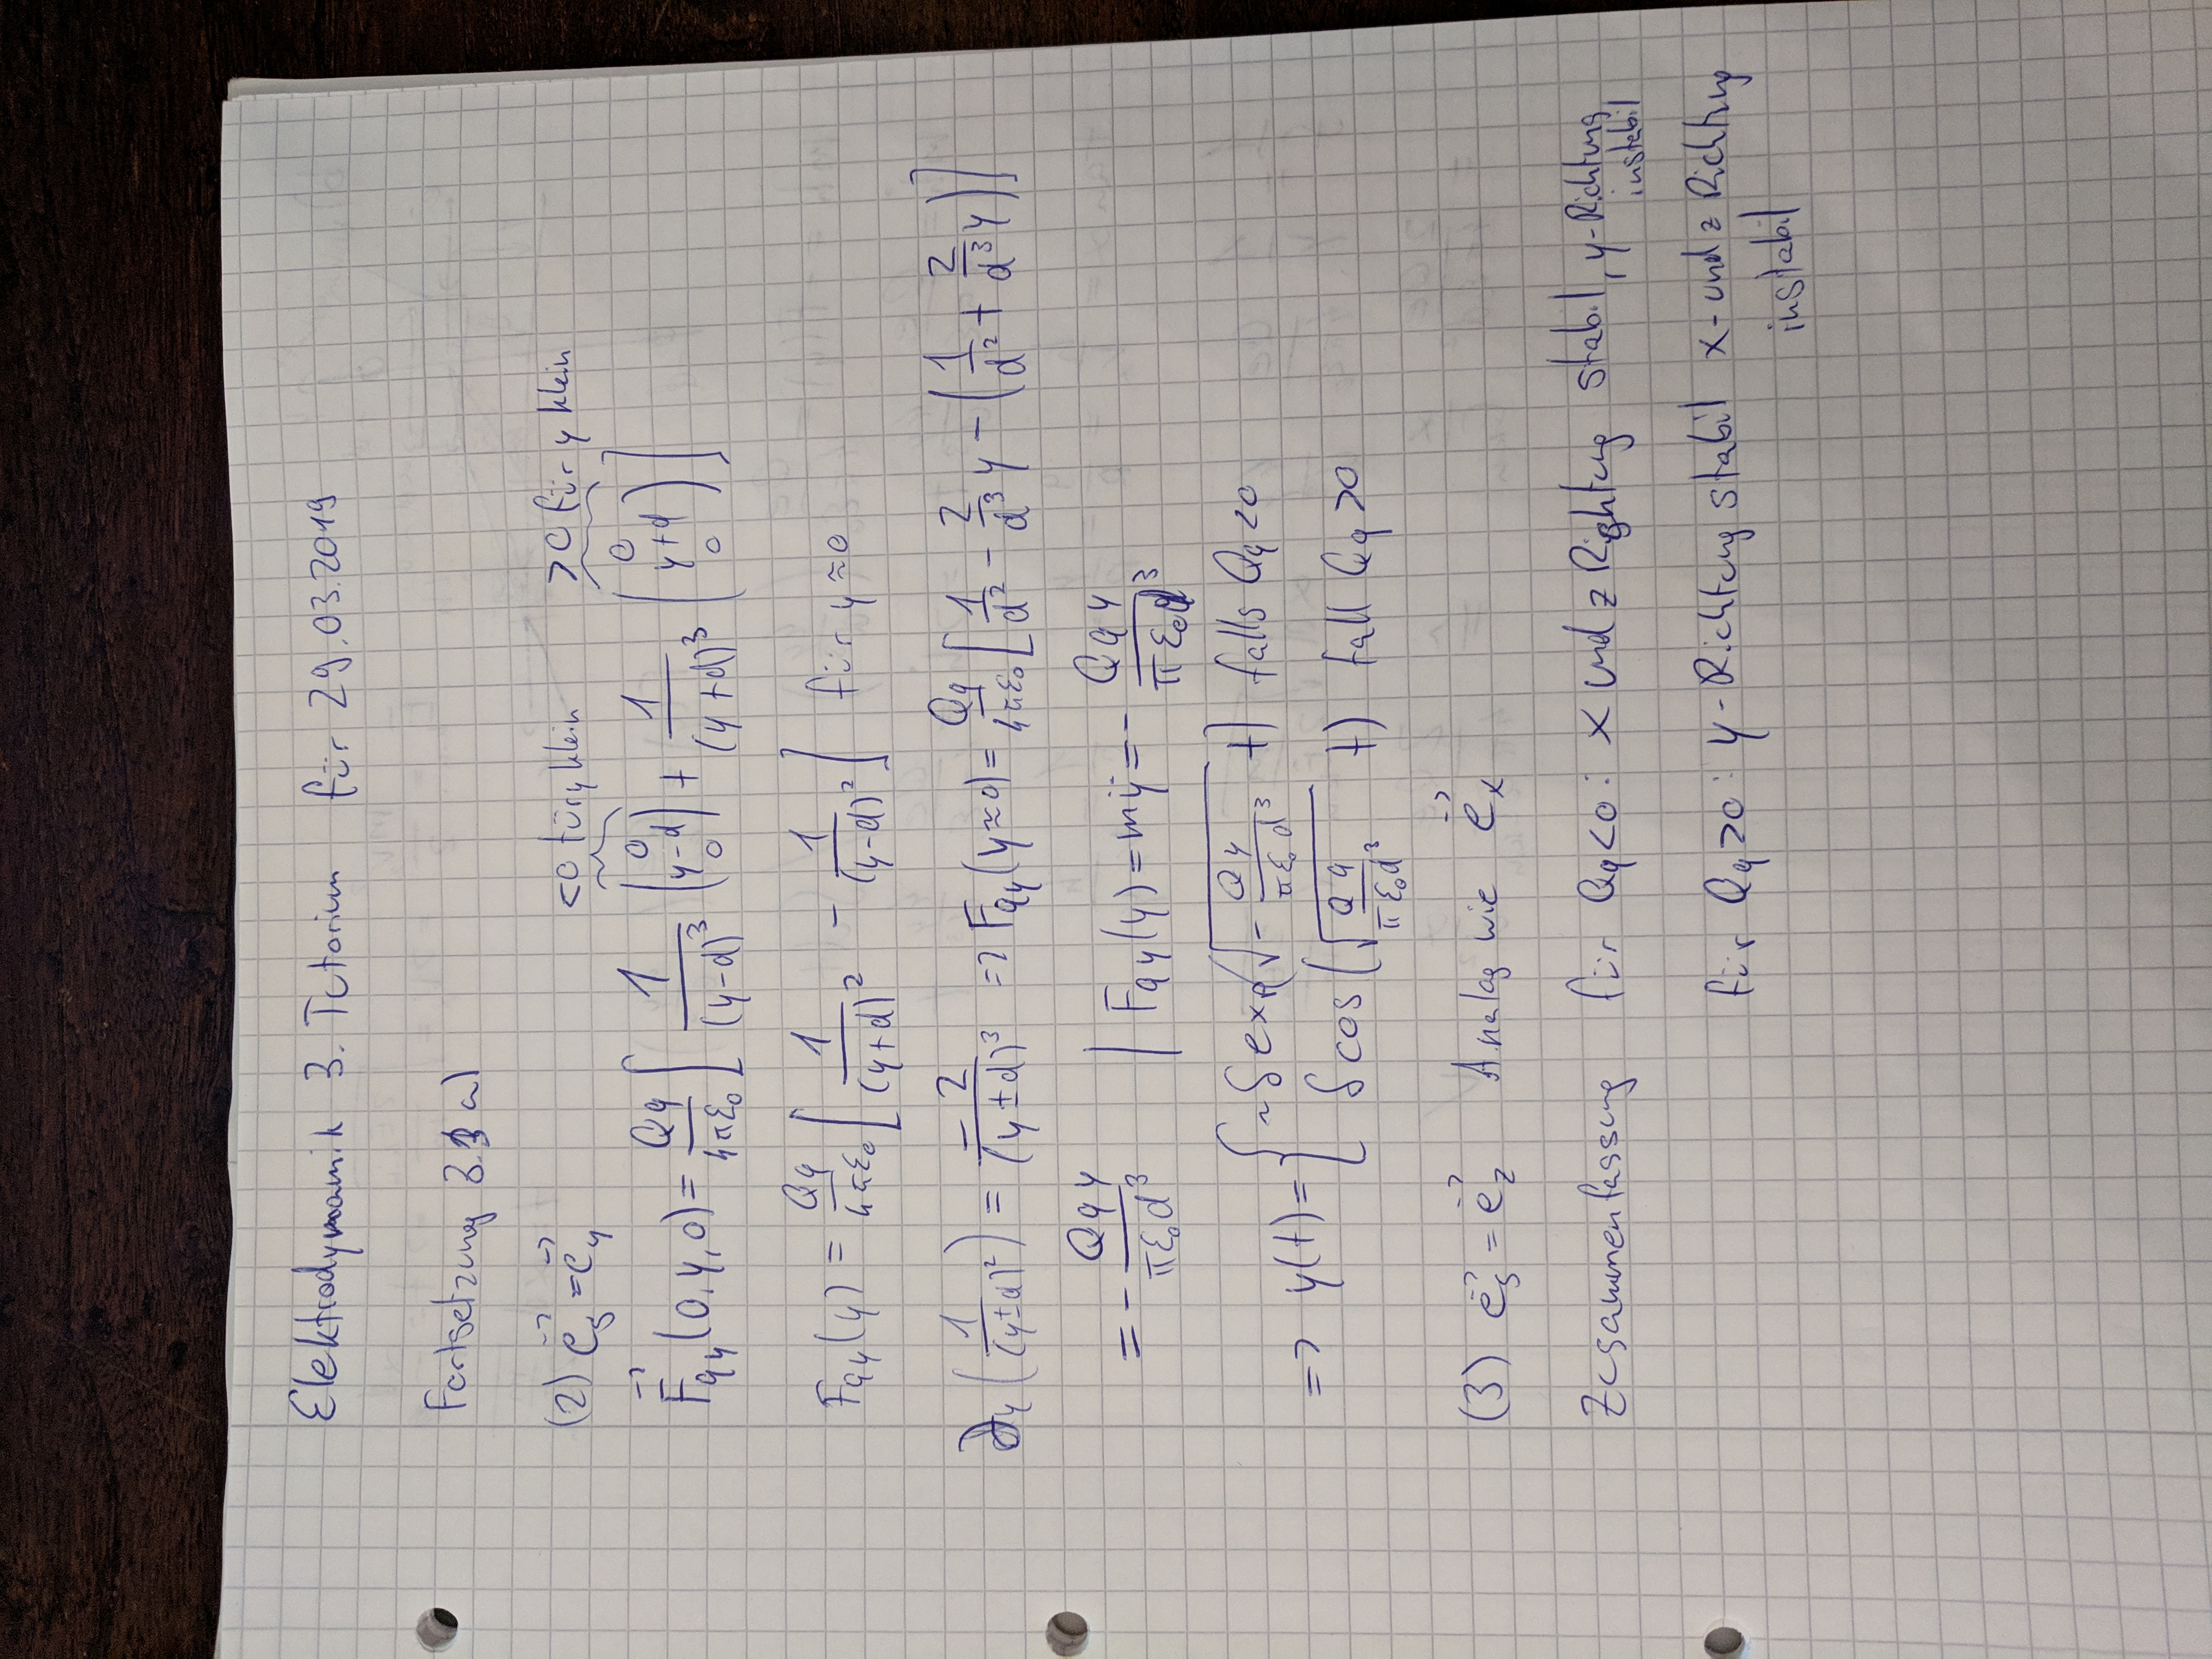 Elektrodynamik 3. Tutorium für 29.03.2019
Fortsetzung 3.3 a)
(2) e⃗_δ = e⃗_y <0 für y klein >0 für y klein
F⃗_qy(0,y,0) = Qq/(4πε₀) [ 1/(y-d)³ (0, y-d, 0) + 1/(y+d)³ (0, y+d, 0) ]
F_qy(y) = Qq/(4πε₀) [ 1/(y+d)² - 1/(y-d)² ] für y≈0
∂_y (1/(y±d)²) = -2/(y±d)³ => F_qy(y≈0) = Qq/(4πε₀) [ 1/d² - 2/d³ y - (1/d² + 2/d³ y) ]
= - Qqy/(πε₀d³) | F_qy(y) = mÿ = - Qqy/(πε₀d³)
=> y(t) = { ~ δ exp(√(- Qq/(πε₀d³)) t) falls Qq<0
δ cos(√(Qq/(πε₀d³)) t) fall Qq>0
(3) e⃗_δ = e⃗_z Analog wie e⃗_x
Zusammenfassung für Qq<0: x und z Richtung stabil, y-Richtung
instabil
für Qq>0: y-Richtung stabil x- und z Richtung
instabil